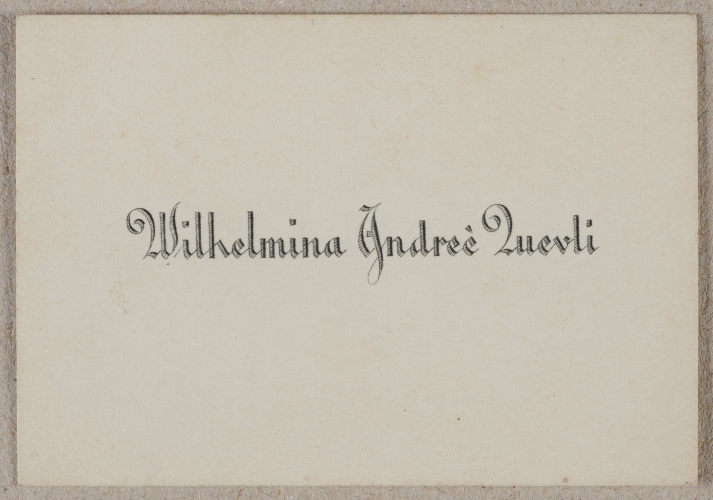 Wilhelmina Andreè Quevli